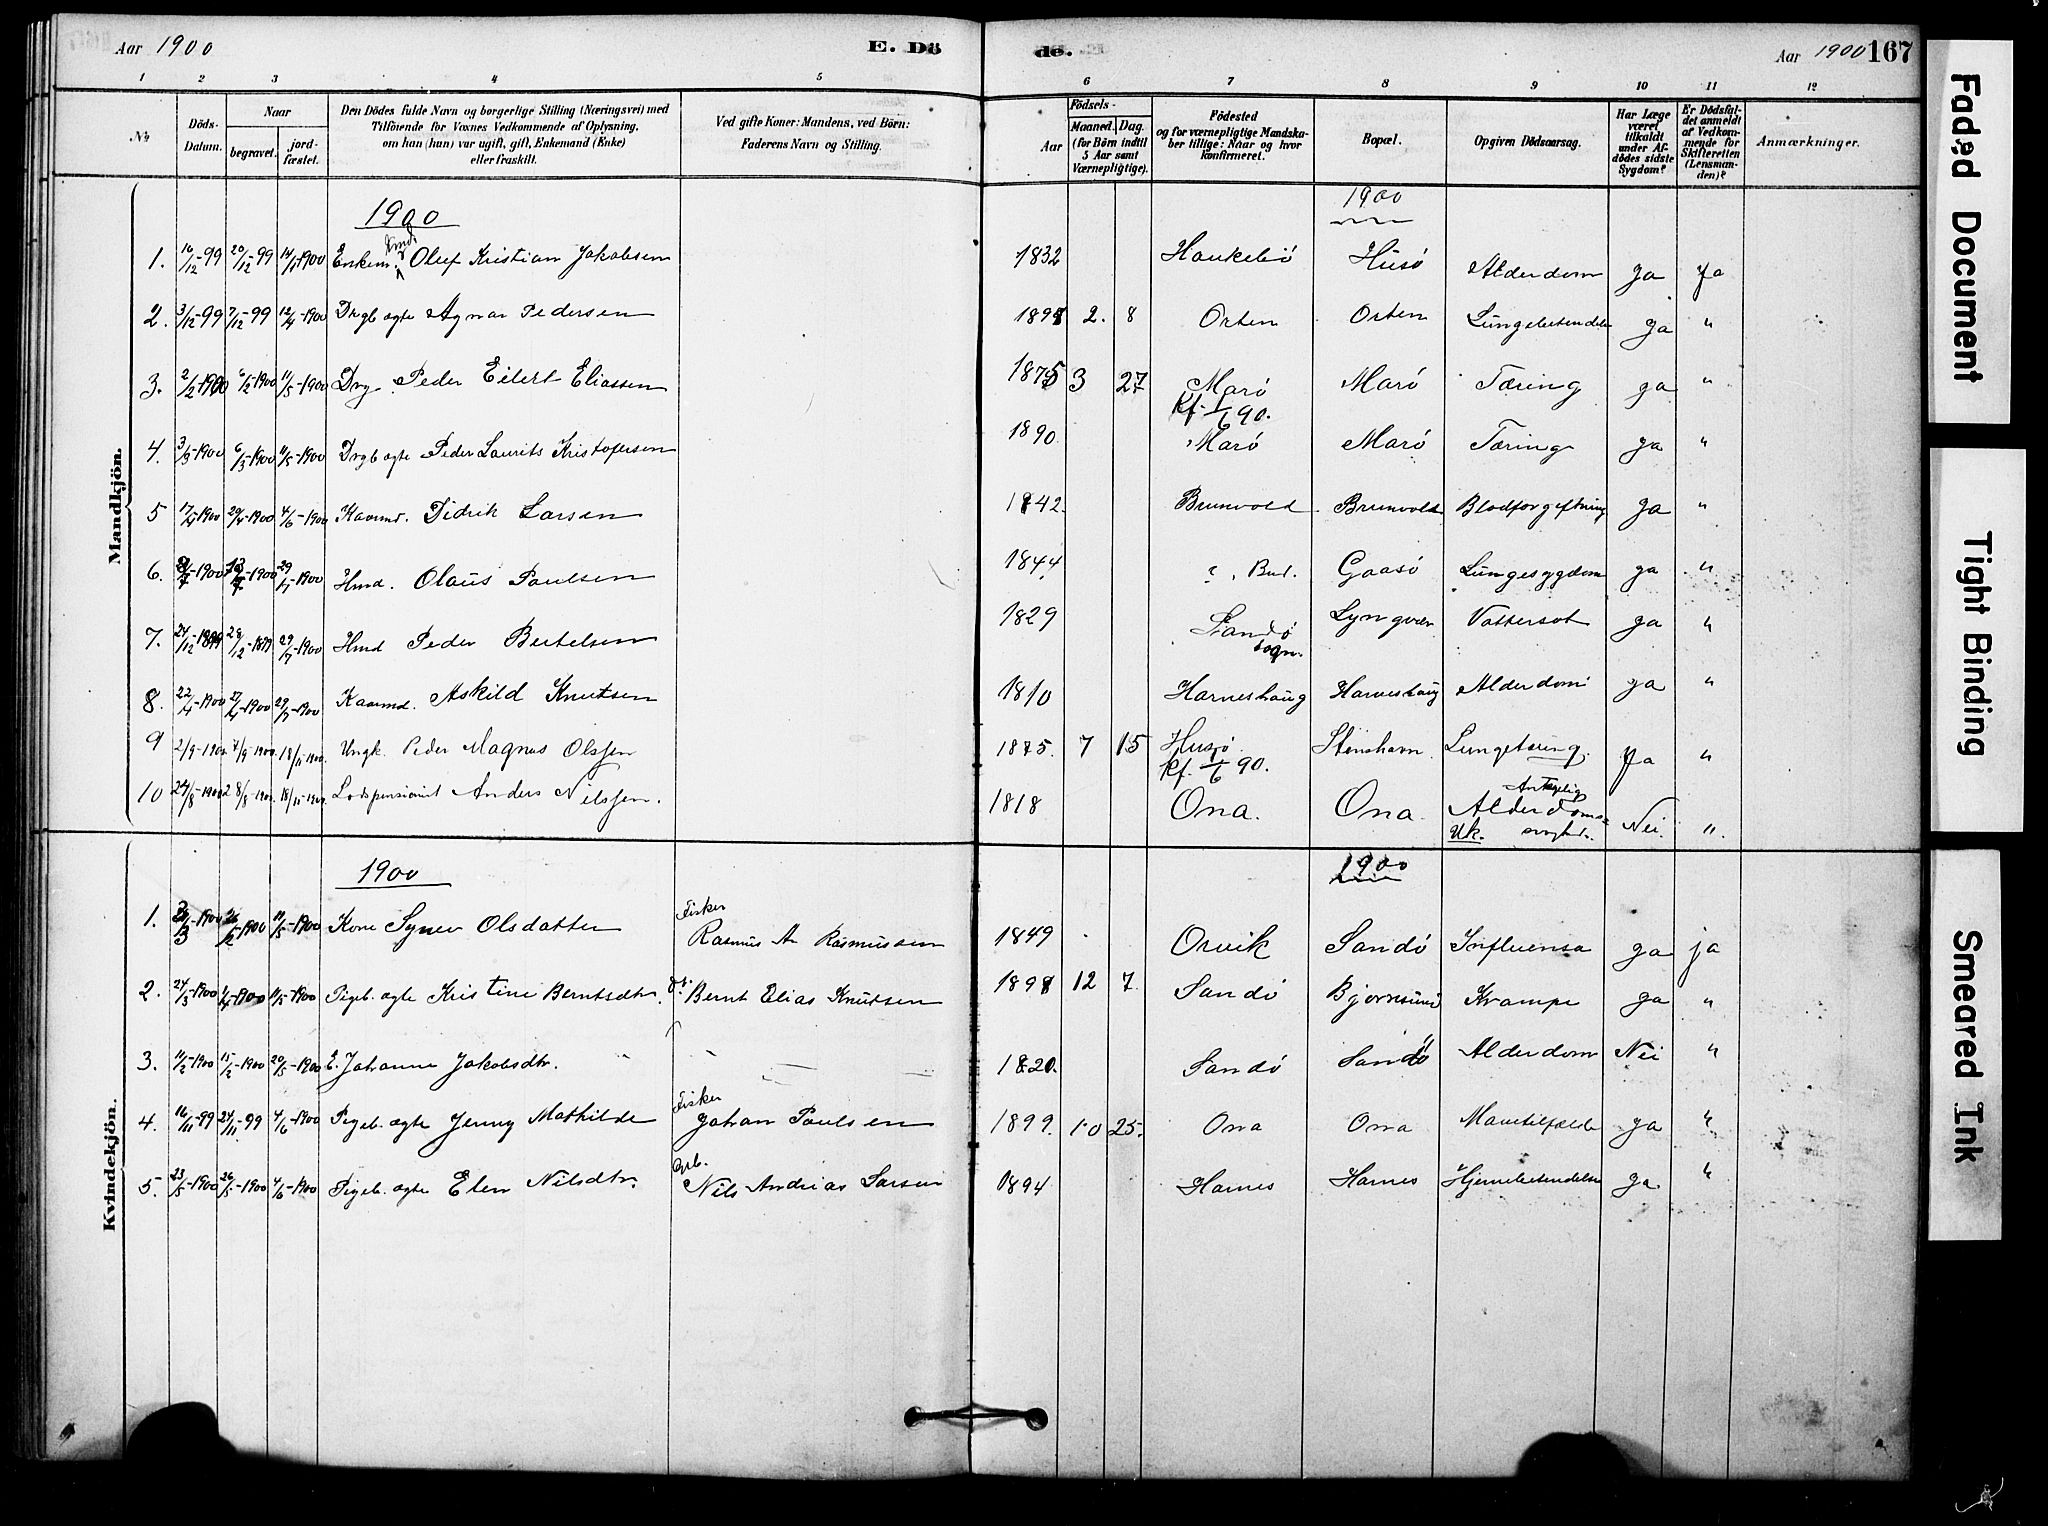 Aar 1900
E. Dö
de.
Aar 1900 167
1 2 3 4 5 6 7 8 9 10 11 12
No
Döds-
Datum.
Naar
begravet.
jord-
fæstet.
Den Dödes fulde Navn og borgerlige Stilling (Næringsvei) med
Tilföiende for Voxnes Vedkommende af Oplysning,
om han (hun) var ugift, gift, Enkemand (Enke)
eller fraskilt.
Ved gifte Koner: Mandens, ved Börn:
Faderens Navn og Stilling.
Födsels-
Aar
Maaned. Dag.
(for Börn indtil
5 Aar samt
Værnepligtige).
Födested
og for værnepligtige Mandska-
ber tillige: Naar og hvor
konfirmeret.
Bopæl.
Opgiven Dödsaarsag.
Har Læge
været
tilkaldt
under Af-
dödes sidste
Sygdom?
Er Dödsfal-
det anmeldt
af Vedkom-
mende for
Skifteretten
(Lensman-
den)?
Anmærkninger.
Mandkjön.
1900 1900
1. 16/12-99 20/12-99 14/1-1900 Enkem. Oluf Kristian Jakobsen 1832 Haukebö Husö Alderdom ja Ja
2. 3/12-99 7/12-99 12/4-1900 Drgb ægte Agnar Pedersen 1898 2. 8 Orten Orten Lungebetendelse ja "
3. 2/2-1900 6/2-1900 11/5-1900 Drg. Peder Eilert Eliassen 1875 3 27 Marö Marö Tæring ja "
Kf. 1/6 90.
4. 3/3-1900 6/3-1900 11/5-1900 Drgb ægte Peder Laurits Kristofersen 1890 Marö Marö Tæring ja "
5 17/4-1900 20/4-1900 4/6-1900 Kaarmd. Didrik Larsen 1842. Brunvold Brunvold Blodforgiftning ja "
6. 1900 1900 29/7-1900 Hmd. Olaus Paulsen 1844 Bud. Gaasö Lungesygdom ja "
7. 24/12-1899 28/12-1899 29/7-1900 Hmd Peder Bertelsen 1829 Sandö Lyngvær Vattersot ja "
sogn.
8. 22/4-1900 27/4-1900 29/7-1900 Kaarmd. Askild Knutsen 1810 Harneshaug Harneshaug Alderdom ja "
9 2/9-1900 7/9-1900. 18/11-1900. Ungk. Peder Magnus Olsen 1875. 7 15 Husö. Stenshavn Lungetæring. Ja "
Kf. 1/6 90.
10 24/8-1900 28/8-1900. 18/11-1900. Lodspensionist Anders Nilssen. 1818 Ona. Ona. Alderdoms- Nei. "
Uk. svaghed.
Kvindekjön.
1900 1900
Fisker
1. 1900 1900 11/5-1900 Kone Synev Olsdatter Rasmus An Rasmussen 1849 Orvik Sandö Influensa ja ja
2. 24/3-1900 1900 11/5-1900 Pigeb. ægte Kristine Berntsdtr. Bernt Elias Knutsen 1898 12 7. Sandö Bjørnsund Krampe ja "
3. 11/2-1900 15/2-1900 20/5-1900 E. Johanne Jakobsdtr. 1820. Sandö Sandö Alderdom Nei "
Fisker
4. 16/11-99 24/11-99 4/6-1900 Pigeb. ægte Jenny Mathilde Johan Paulsen 1899. 10 25. Ona Ona Mavetilfælde ja "
5. 23/5-1900 26/5-1900 4/6-1900 Pigeb. ægte Elen Nilsdtr. Nils Andrias Larsen 1894 Harnes Harnes Hjernebetendelse ja "
Faded Document
Tight Binding
Smeared Ink